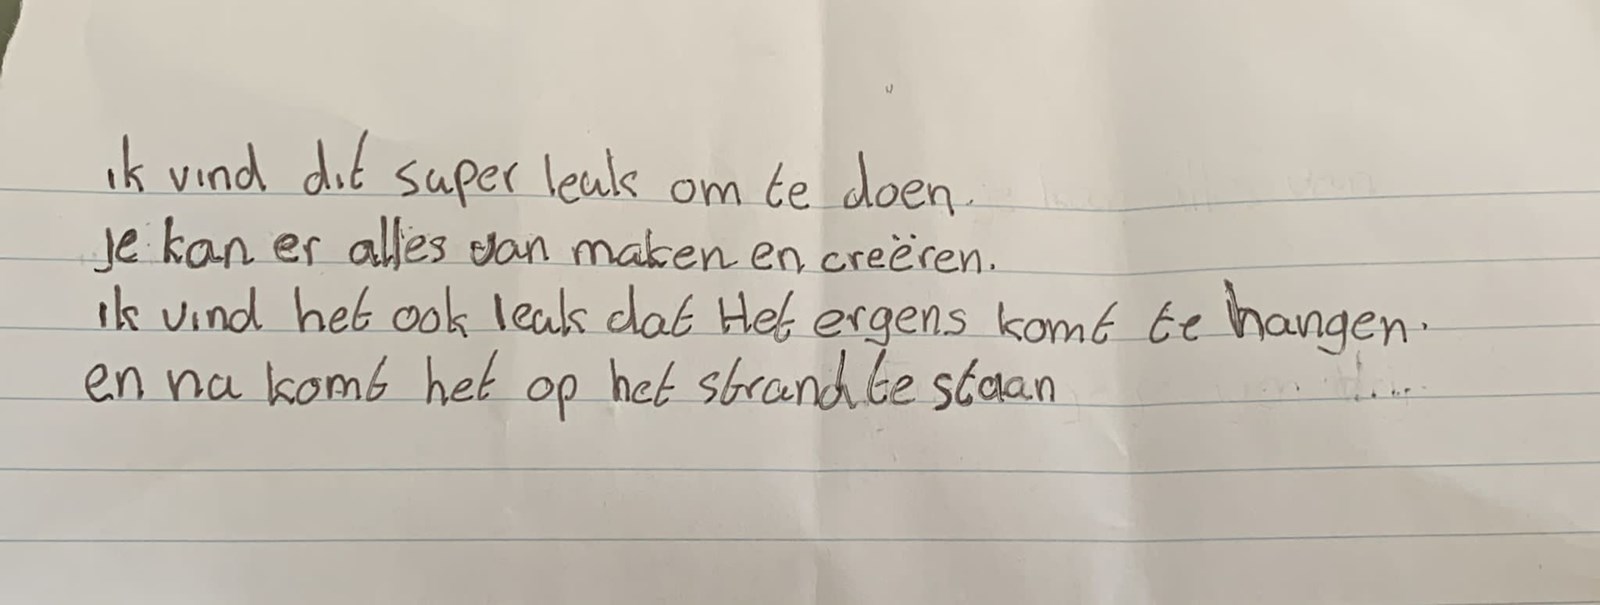 ik vind dit super leuk om te doen.
je kan er alles van maken en creëren.
ik vind het ook leuk dat Het ergens komt te hangen.
en na komt het op het strand te staan